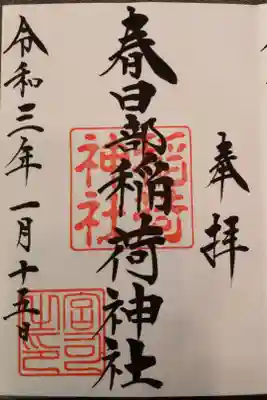 奉拝
春日部稲荷神社
稲荷神社
令和三年一月十五日
宮司之印